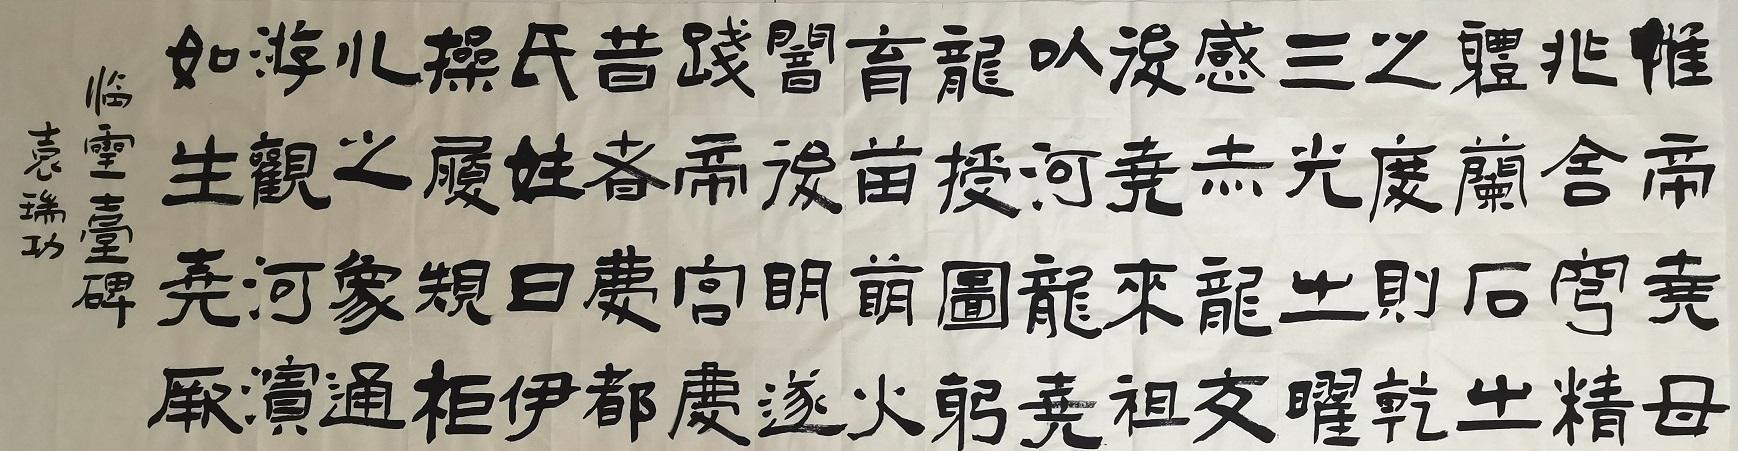 惟帝堯母
兆舍穹精
軆蘭石㞢
之度則乾
三光㞢曜
感赤龍交
後堯來祖
以河龍堯
龍授圖躬
育苗萌火
闇後明遂
踐帝宫慶
昔者慶都
氏姓曰伊
操履規柜
巛之象通
游觀河濱
如生堯厥
临雲臺碑
袁瑞功